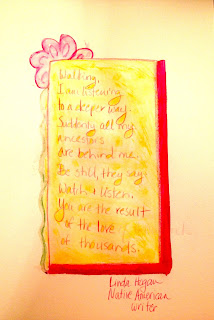 Walking,
I am listening
to a deeper way.
Suddenly all my
ancestors
are behind me.
Be still, they say.
Watch & listen.
You are the result
of the love
of thousands.
Linda Hogan
Native American
writer